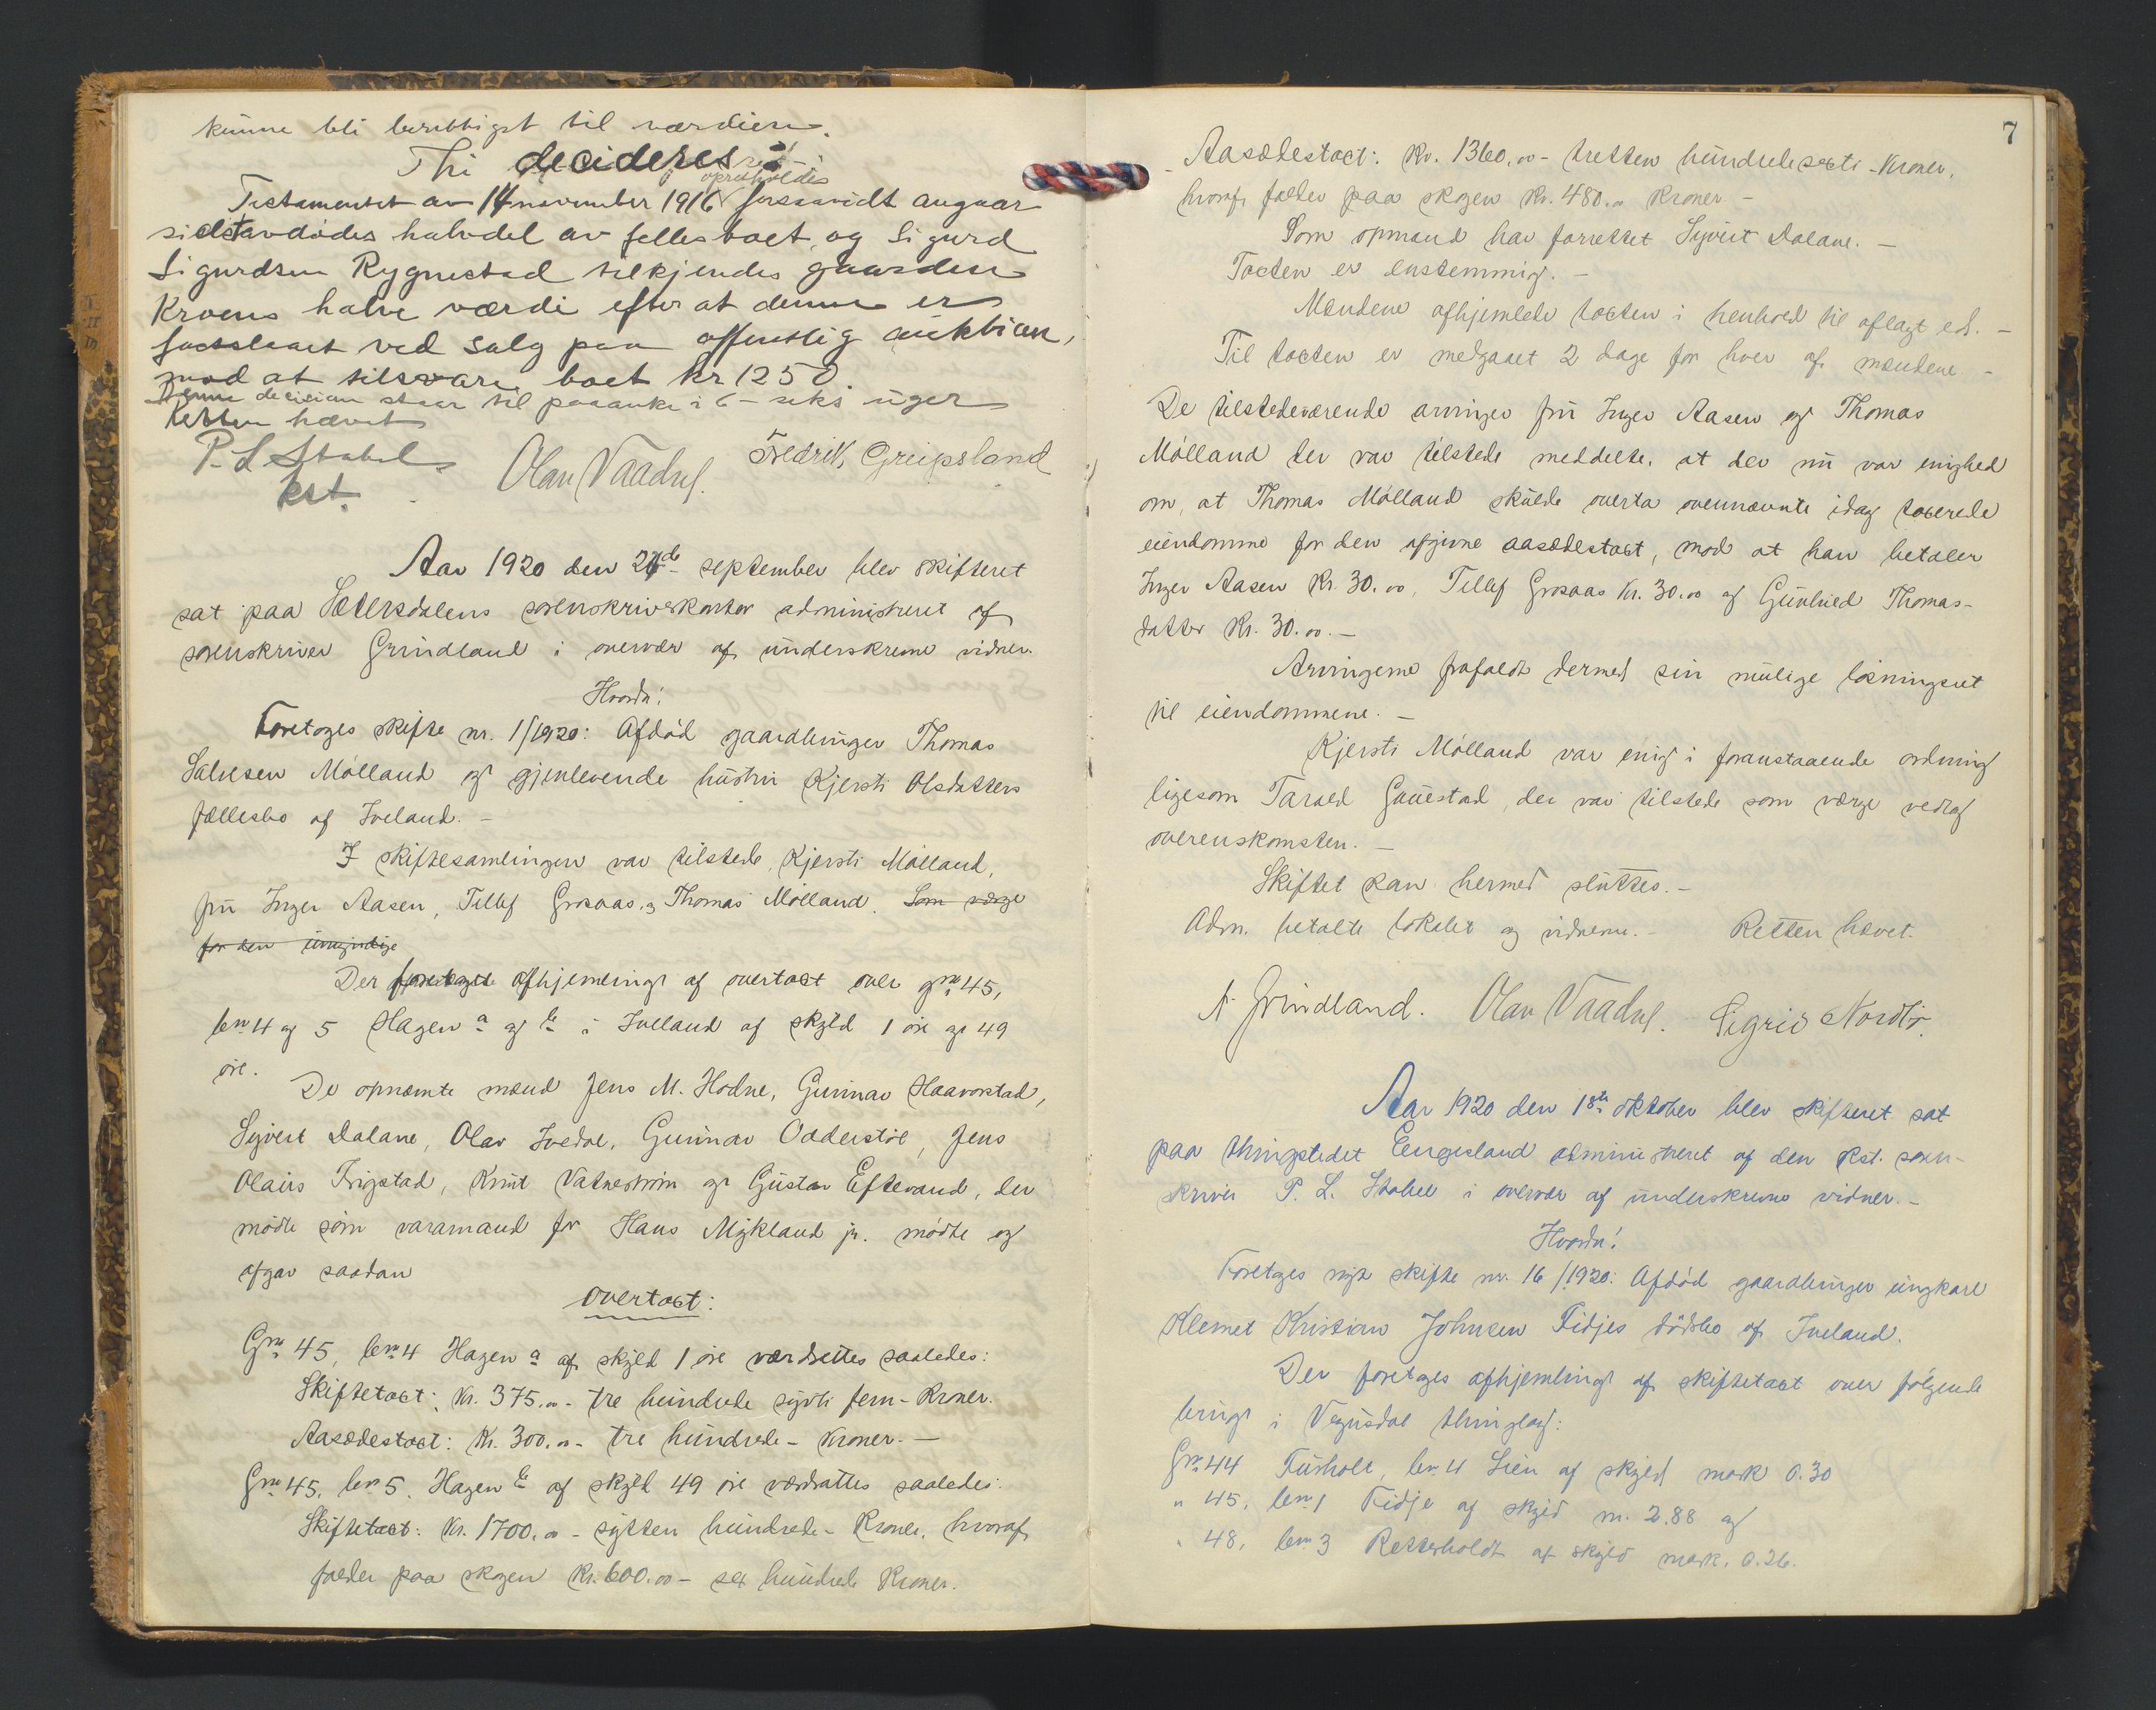 kunne bli berettiget til værdien.
Thi decideres:
opretholdes
Testamentet av 14 november 1916 forsaavidt angaar
sidstavdødes halvdel av fellesboet, og Sigurd
Sigurdsen Rygnestad tilkjendes gaarden
Kroens halve værdi efter at denne er
fastslaaet ved salg paa offentlig auktion,
mod at tilsvare boet kr 1250
Denne decision staar til paaanke i 6 - seks uger
Retten hævet
P. L Stabel
kst.
Olav Vaadnes.
Fredrik Greipsland
Aar 1920 den 26de september blev skifteret
sat paa Sætersdalens sorenskriverkontor administreret af
sorenskriver Grindland i overvær af underskrevne vidner.
Hvorda!
Foretoges skifte nr. 1/1920: Afdød gaardbruger Thomas
Salvesen Mølland og gjenlevende hustru Kjersti Olsdatters
fællesbo af Iveland. -
I skiftesamlingen var tilstede, Kjersti Mølland,
fru Inger Aasen, Tellef Grosaas, og Thomas Mølland. Som værge
for den umyndige
Der foretoges afhjemling af overtaxt over gnr 45,
bnr 4 og 5 Hagen a og b i Iveland af skyld 1 øre og 49
øre.
De opnævnte mænd Jens M. Hodne, Gunnar Haavorstad,
Syvert Dalane, Olav Ivedal, Gunnar Odderstøl, Jens
Olaus Frigstad, Knut Vatnestrøm og Gustav Eftevand, der
mødte som varamand for Hans Mykland jr. mødte og
afgav saadan
overtaxt:
Gnr 45, bnr 4 Hagen a af skyld 1 øre værdsættes saaledes:
Skiftetaxt: Kr. 375.00 - tre hundrede sytti fem - Kroner.
Aasædestaxt: Kr. 300.00 - tre hundrede - Kroner. -
Gnr 45, bnr 5. Hagen b af skyld 49 øre værdsættes saaledes:
Skiftetaxt: Kr. 1700.00 - sytten hundrede - Kroner, hvoraf
falder paa skogen Kr. 600.00 - sex hundrede Kroner.
7
Aasædestaxt: Kr. 1360.00 - tretten hundrede sexti - Kroner,
hvoraf falder paa skogen Kr. 480.00 Kroner -
Som opmand har forrettet Syvert Dalane. -
Taxten er enstemmig. -
Mændene afhjemlede taxten i henhold til aflagt ed. -
Til taxten er medgaaet 2 dage for hver af mændene. -
De tilstedeværende arvinger fru Inger Aasen og Thomas
Mølland der var tilstede meddelte, at der nu var enighed
om, at Thomas Mølland skulde overta ovennævnte idag taxerede
eiendomme for den afgivne aasædestaxt, mod at han betaler
Inger Aasen Kr. 30.00, Tellef Grosaas Kr. 30.00 og Gunhild Thomas-
datter Kr. 30.00. -
Arvingerne frafaldt dermed sin mulige løsningsret
til eiendommene. -
Kjersti Mølland var enig i foranstaaende ordning
ligesom Tarald Gauestad, der var tilstede som værge vedtog
overenskomsten. -
Skiftet kan hermed sluttes. -
Adm. betalte lokalet og vidnerne. - Retten hævet.
Grindland. Olav Vaadnes. Sigrid Nordbø.
Aar 1920 den 18de oktober blev skifteret sat
paa thingstedet Engesland administreret af den kst. soren-
skriver P. L. Stabel i overvær af underskrevne vidner. -
Hvorda!
Foretoges nyt skifte nr. 16/1920: Afdød gaardbruger ungkarl
Klemet Kristian Johnsen Fidjes dødsbo af Iveland.
Der foretoges afhjemling af skiftetaxt over følgende
brug i Vegusdal thinglag:
Gnr 44 Furholt, bnr 4 Lien af skyld mark 0.30
" 45, bnr 1 Fidje af skyld m. 2.88 og
" 48, bnr 3 Retterholdt af skyld mark. 0.26.